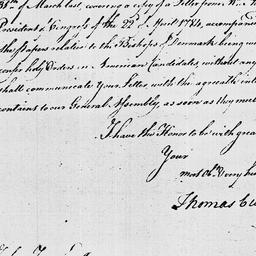 31st of March last, covering a Copy of a Letter from
President of Congress of the 22d of April 1784, accompanied
the Papers relative to the Bishops of Denmark being
confer holy Orders on American Candidates without any
shall communicate your Letter, with the agreeable
contains to our General Assembly, as soon as they meet
I have the Honor to be with great
Your
most Obt. & very hu
Thomas